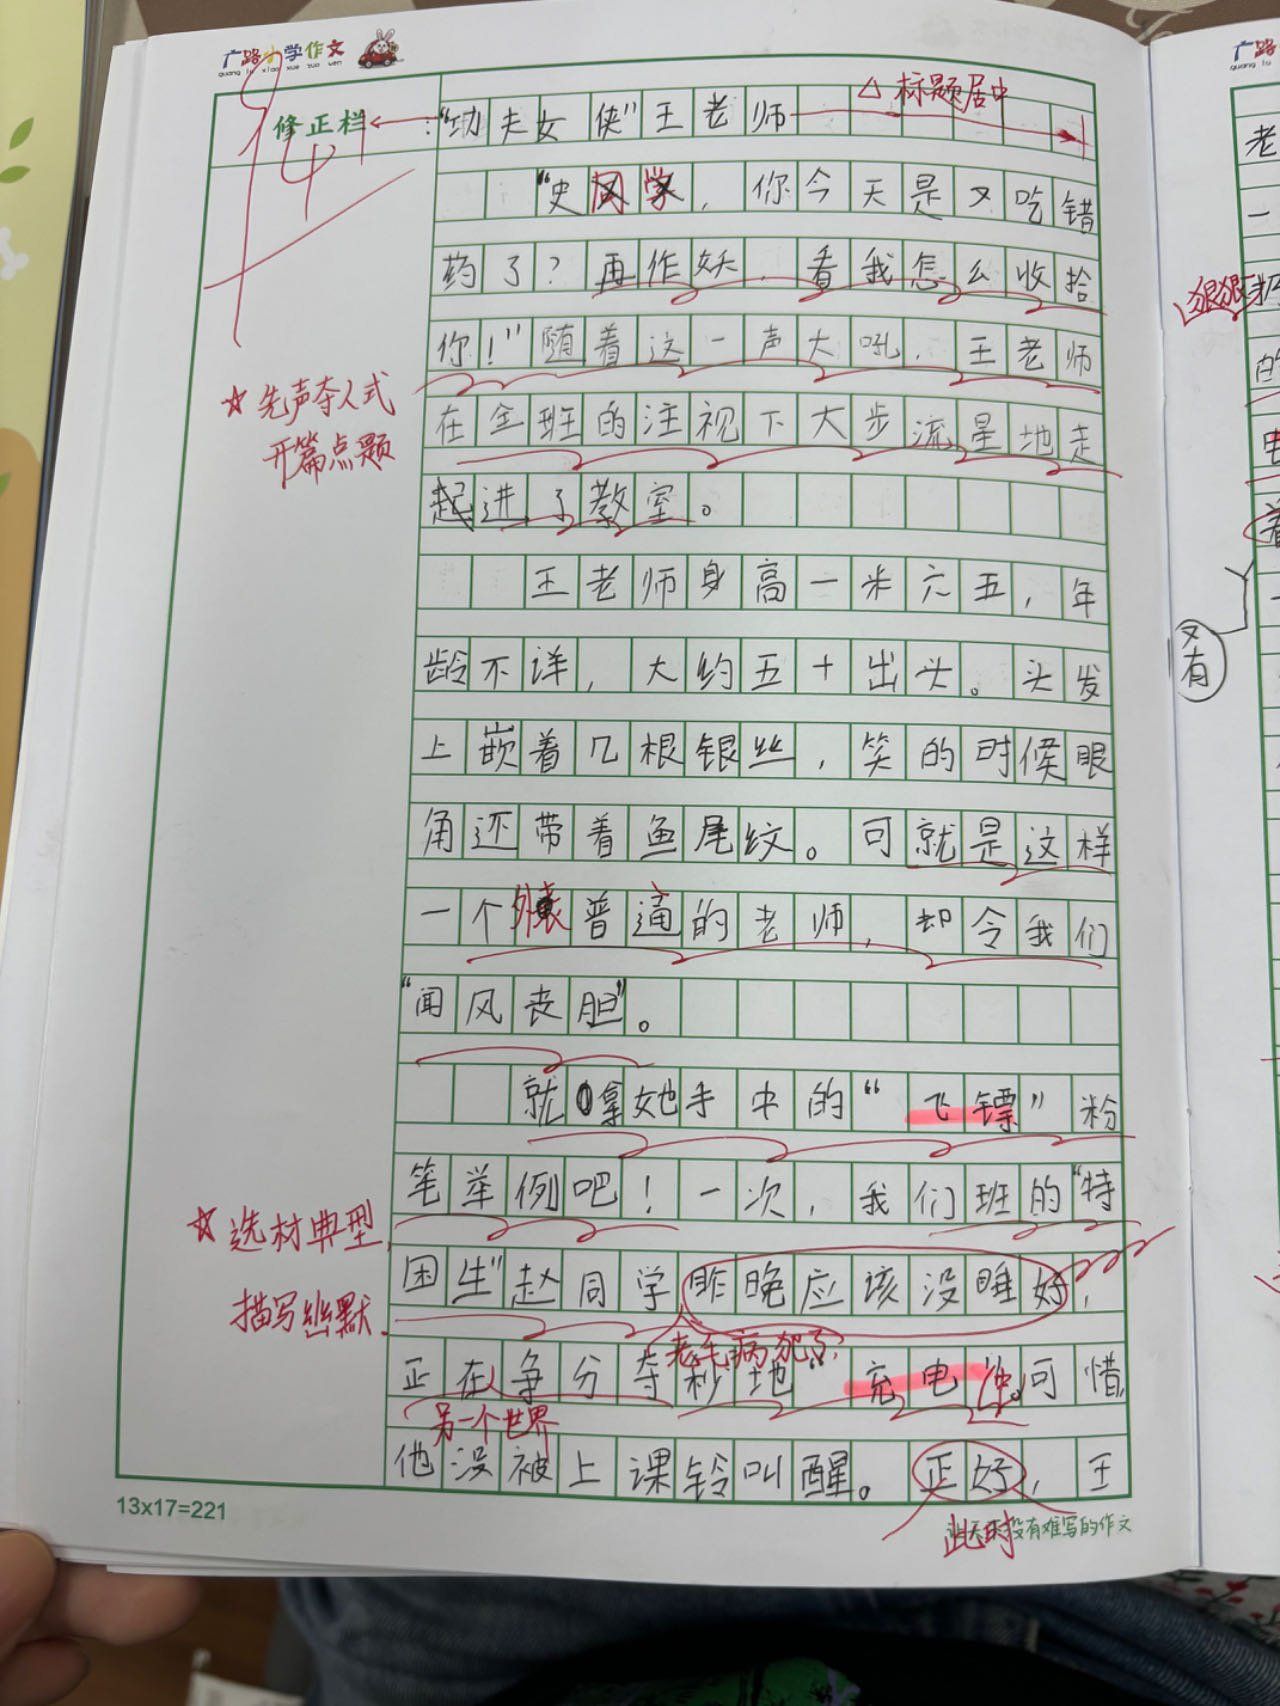 广路小学作文
guang lu xiao xue zuo wen
修正栏
△标题居中
“功夫女侠”王老师
“史同学，你今天是又吃错
药了？再作妖，看我怎么收拾
你！”随着这一声大吼，王老师
在全班的注视下大步流星地走
起进了教室。
☆先声夺人式
开篇点题
王老师身高一米六五，年
龄不详，大约五十出头。头发
上嵌着几根银丝，笑的时候眼
角还带着鱼尾纹。可就是这样
一个外表普通的老师，却令我们
“闻风丧胆”。
就拿她手中的“飞镖”粉
笔举例吧！一次，我们班的“特
☆选材典型，
描写幽默。
困生”赵同学昨晚应该没睡好，
老毛病犯了，
正在争分夺秒地“充电”。可惜
另一个世界
他没被上课铃叫醒。正好，王
此时
13x17=221
没有难写的作文
老
一
狠狠
的
着
又有
广路
guang lu